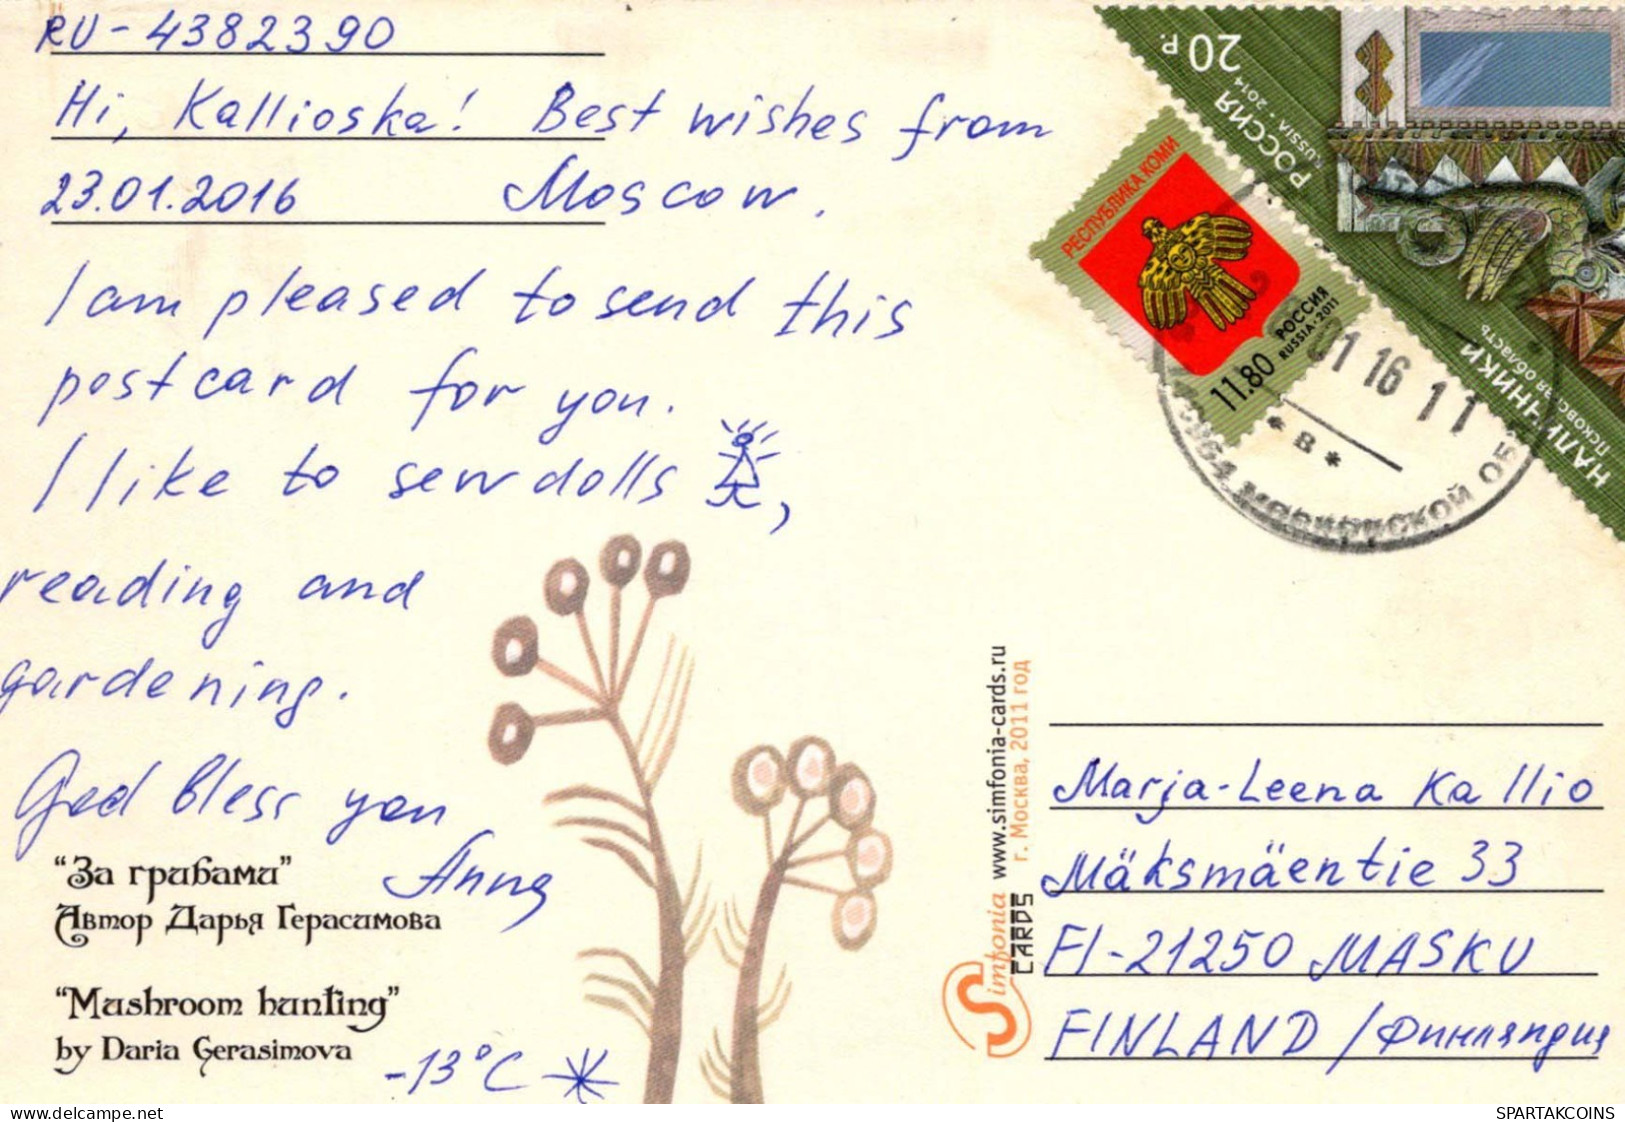 RU-4382390
Hi, Kallioska! Best wishes from
23.01.2016 Moscow.
I am pleased to send this
postcard for you.
I like to sew dolls ,
reading and
gardening.
God bless you
Anna
"За грибами"
Автор Дарья Герасимова
"Mushroom hunting"
by Daria Gerasimova
-13°C
www.simfonia-cards.ru
г. Москва, 2011 год
Simfonia
CARDS
20 Р.
РОССИЯ
RUSSIA · 2014
НАЛИЧНИКИ
Псковская область
РЕСПУБЛИКА КОМИ
РОССИЯ
RUSSIA · 2011
11.80
01 16 11
* В *
МОСКОВСКОЙ ОБ
Marja-Leena Kallio
Mäksmäentie 33
FI-21250 MASKU
FINLAND / Финляндия
www.delcampe.net
SPARTAKCOINS